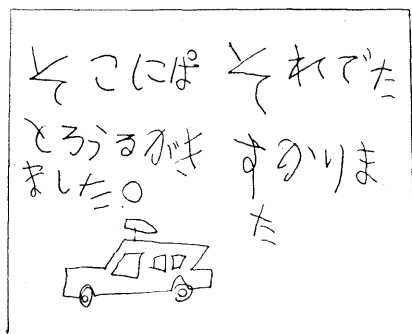 そこにぱ
とろうるがき
ました。
それでた
すかりま
た